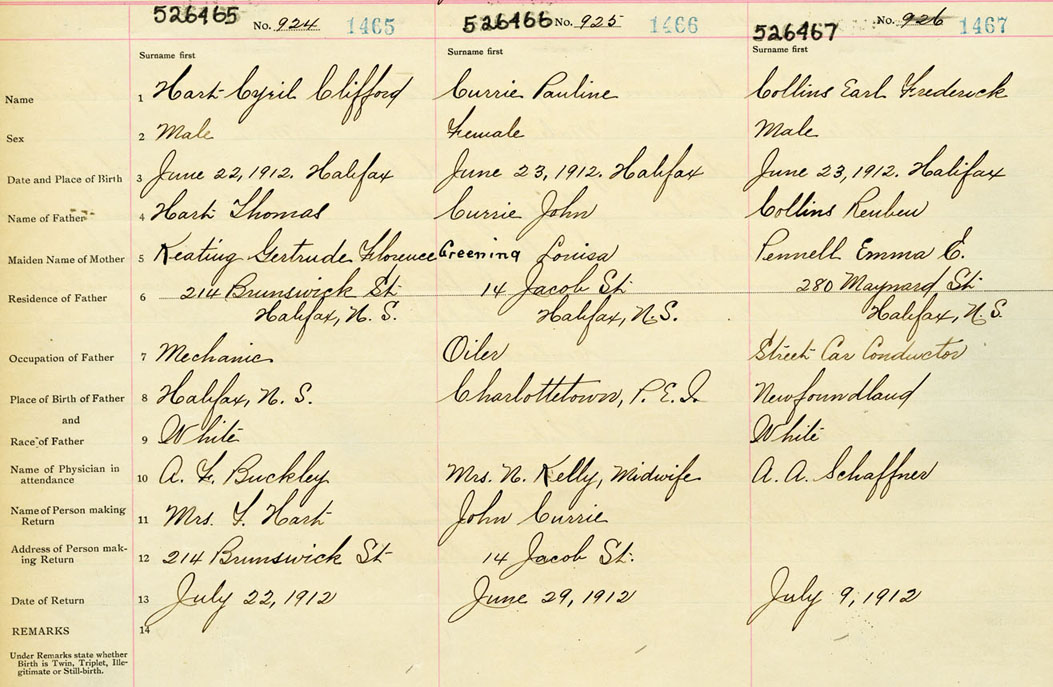 526465 No. 924 1465 526466 No. 925 1466 526467 No. 926 1467
Surname first Surname first Surname first
Name 1 Hart Cyril Clifford Currie Pauline Collins Earl Frederick
Sex 2 Male Female Male
Date and Place of Birth 3 June 22, 1912. Halifax June 23, 1912. Halifax June 23, 1912. Halifax
Name of Father 4 Hart Thomas Currie John Collins Reuben
Maiden Name of Mother 5 Keating Gertrude Florence Greening Louisa Pennell Emma E.
Residence of Father 6 214 Brunswick St 14 Jacob St. 280 Maynard St
Halifax, N. S. Halifax, N.S. Halifax, N.S.
Occupation of Father 7 Mechanic Oiler Street Car Conductor
Place of Birth of Father 8 Halifax, N. S. Charlottetown, P. E. I. Newfoundland
and
Race of Father 9 White White
Name of Physician in
attendance 10 A. F. Buckley Mrs. N. Kelly, Midwife A. A. Schaffner
Name of Person making
Return 11 Mrs. T. Hart John Currie
Address of Person mak-
ing Return 12 214 Brunswick St 14 Jacob St.
Date of Return 13 July 22, 1912 June 29, 1912 July 9, 1912
REMARKS 14
Under Remarks state whether
Birth is Twin, Triplet, Ille-
gitimate or Still-birth.